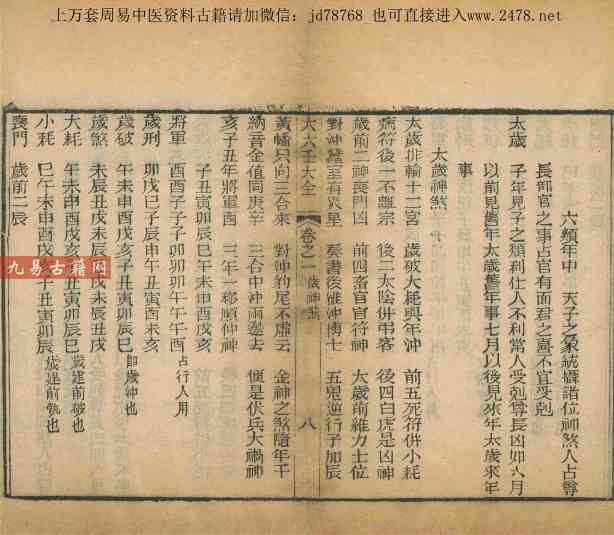 上万套周易中医资料古籍请加微信：jd78768 也可直接进入www.2478.net
六類年中　天子之象統攝諸位神煞人占尊
長部官之事占官有面君之喜不宜受剋
太歲　子年見子之類利仕人不利常人受剋尊長凶如六月
以前見舊年太歲舊年事七月以後見來年太歲來年
事
太歲神煞
太歲排輪十二宮　歲破大耗與年沖　前五死符併小耗
病符後一不離宗　後二太陰併弔客　後四白虎是凶神
歲前二神喪門凶　前四畜官官符神　大歲前維力士位
對沖蠶室有災星　奏書後維沖博士　五鬼逆行子加辰
大六壬大全　卷之一　歲神煞　八
黃幡只向三合來　對沖豹尾不虛云　金神之煞隨年干
納音金值同庚辛　三合中沖兩邊去　便是伏兵大禍神
亥子丑年將軍酉　三年一移順仲神
子丑寅卯辰巳　午未申酉戌亥
將軍　酉酉子子子卯卯卯午午午酉　占行人用
歲刑　卯戌巳子辰申午丑寅酉未亥
歲破　午未申酉戌亥子丑寅卯辰巳　即歲沖也
歲煞　未辰丑戌未辰丑戌未辰丑戌
大耗　午未申酉戌亥子丑寅卯辰巳　歲建前破也
小耗　巳午未申酉戌亥子丑寅卯辰　歲建前執也
喪門　歲前二辰
九易古籍网